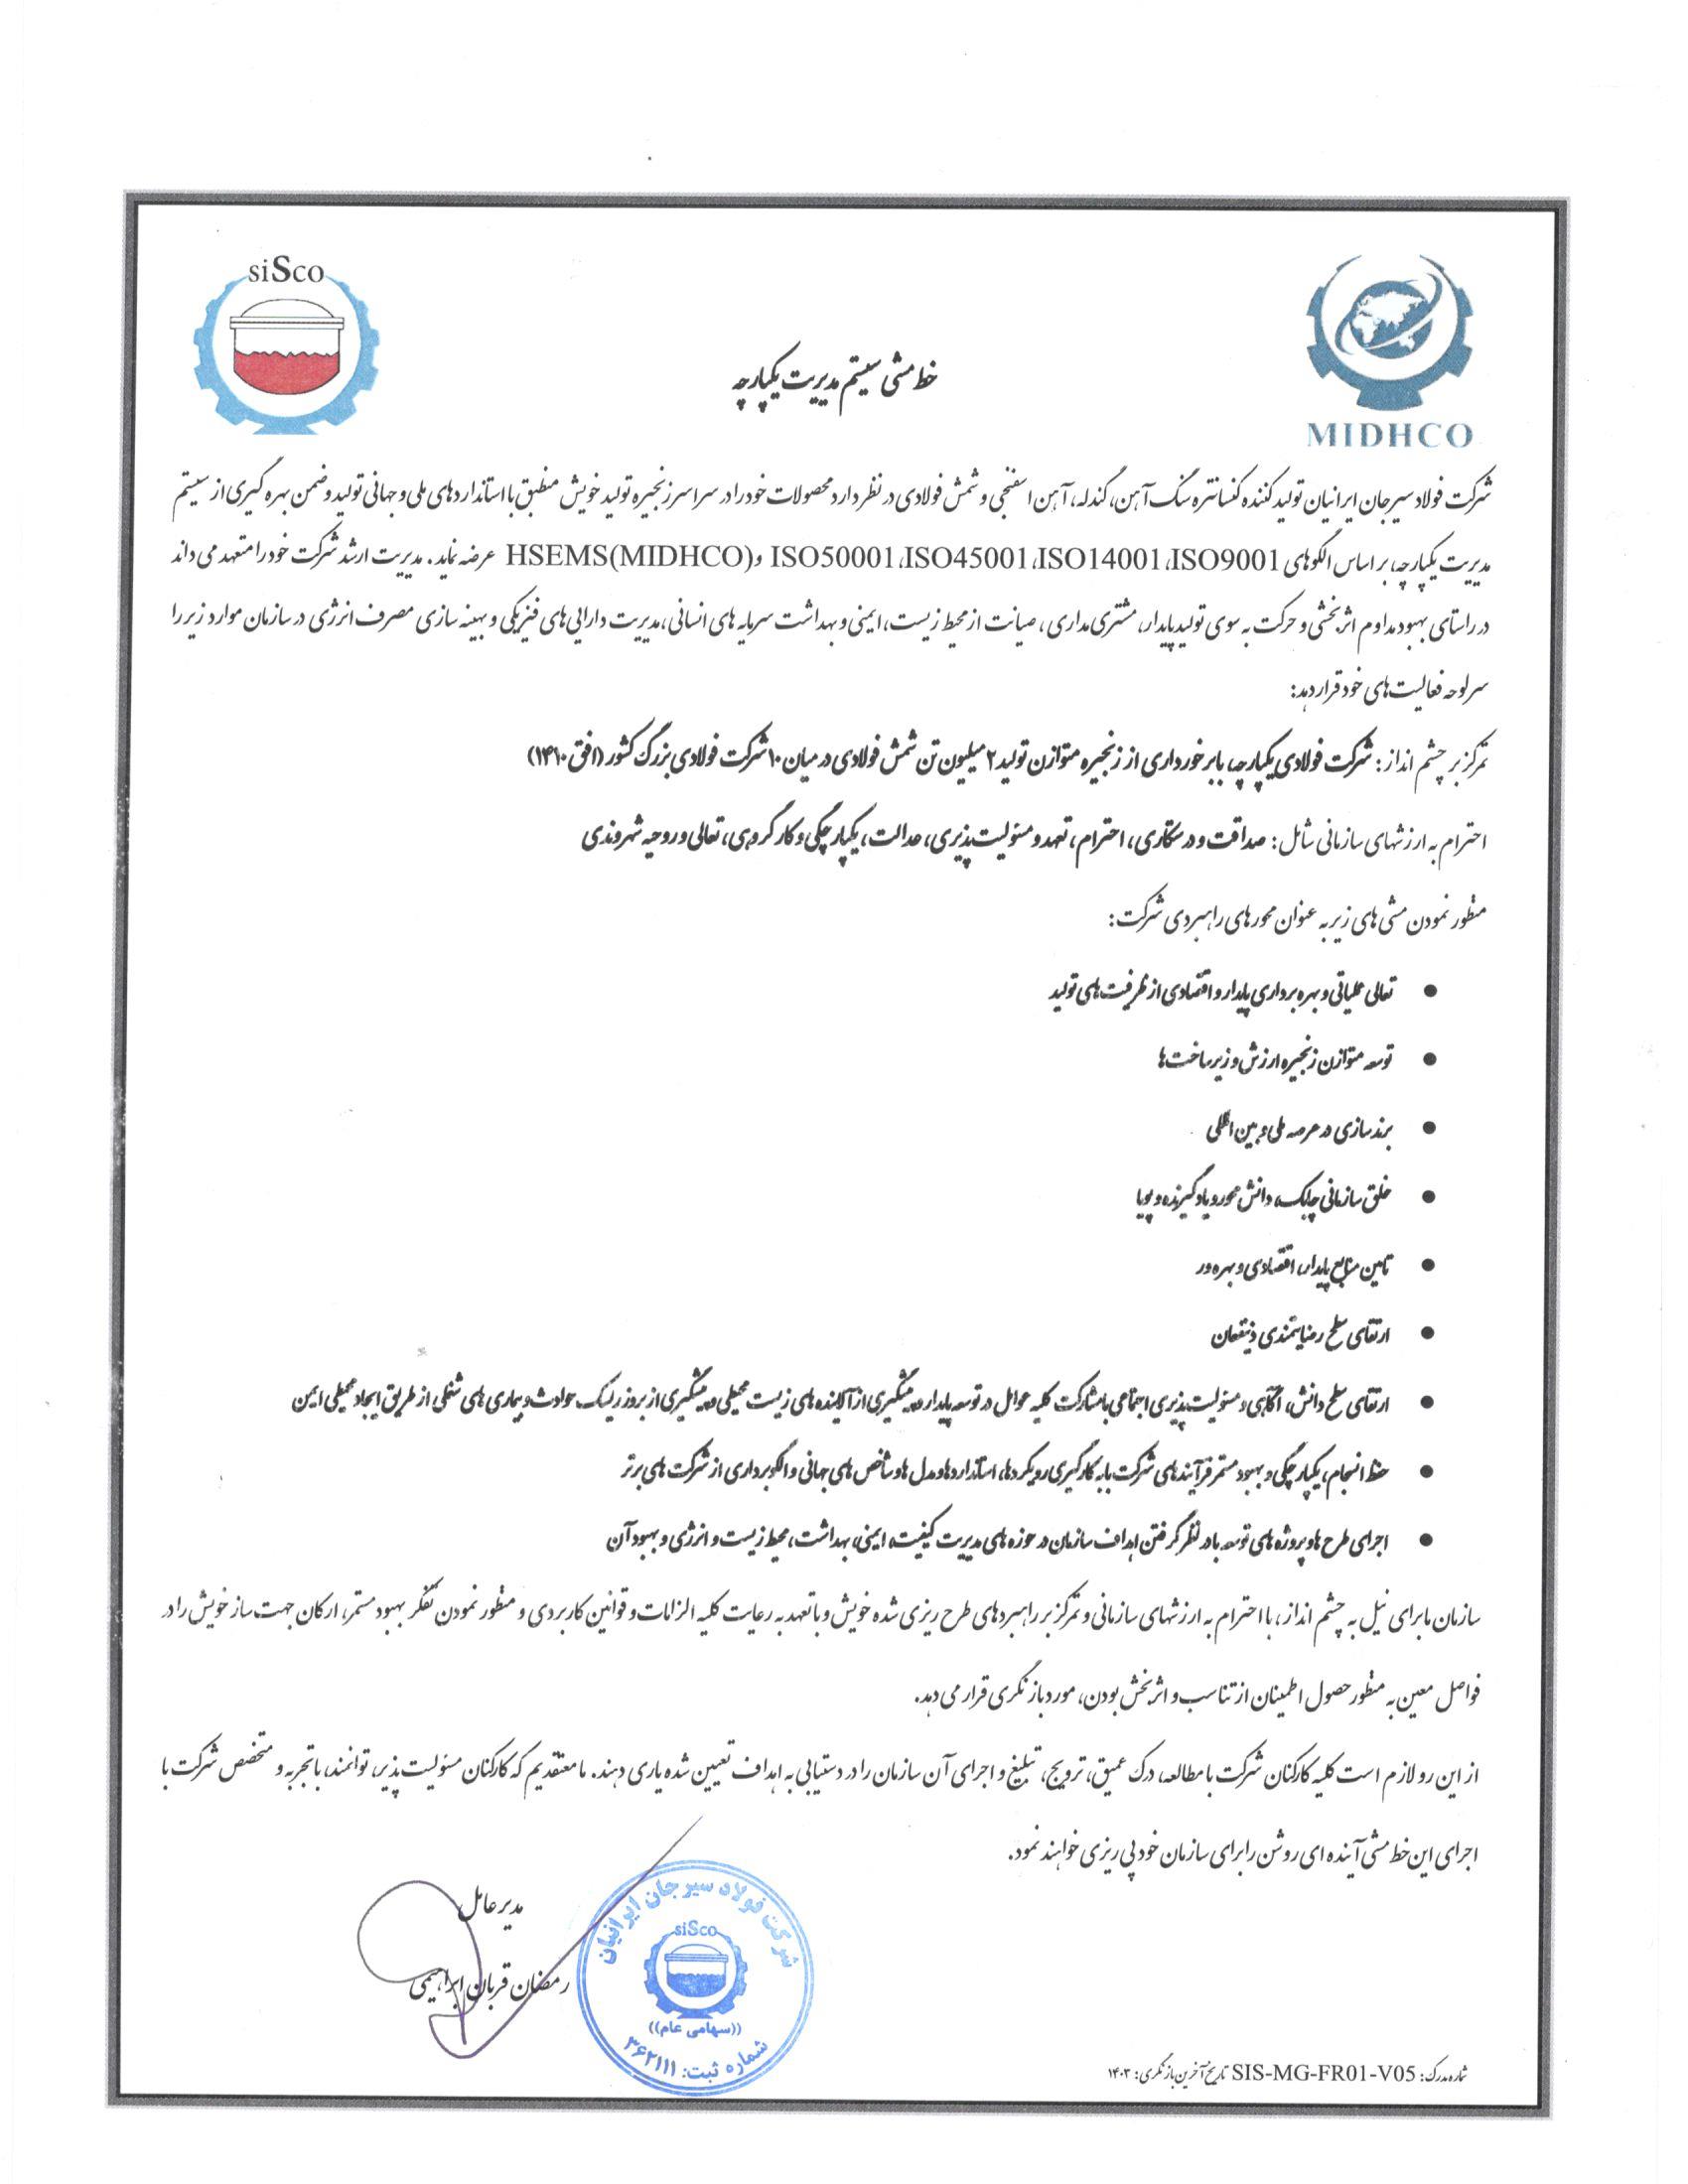 siSco
MIDHCO
خط مشی سیستم مدیریت یکپارچه
شرکت فولاد سیرجان ایرانیان تولید کننده کنسانتره سنگ آهن، گندله، آهن اسفنجی و شمش فولادی در نظر دارد محصولات خود را در سراسر زنجیره تولید خویش منطبق با استانداردهای ملی و جهانی تولید و ضمن بهره گیری از سیستم
مدیریت یکپارچه، بر اساس الگوهای ISO9001،ISO14001،ISO45001،ISO50001 و HSEMS(MIDHCO) عرضه نماید. مدیریت ارشد شرکت خود را متعهد می داند
در راستای بهبود مداوم اثربخشی و حرکت به سوی تولید پایدار، مشتری مداری، صیانت از محیط زیست، ایمنی و بهداشت سرمایه های انسانی، مدیریت دارایی های فیزیکی و بهینه سازی مصرف انرژی در سازمان موارد زیر را
سرلوحه فعالیت های خود قرار دهد:
تمرکز بر چشم انداز: شرکت فولادی یکپارچه، با برخورداری از زنجیره متوازن تولید ۲ میلیون تن شمش فولادی در میان ۱۰ شرکت فولادی بزرگ کشور (افق ۱۴۱۰)
احترام به ارزشهای سازمانی شامل: صداقت و درستکاری، احترام، تعهد و مسئولیت پذیری، عدالت، یکپارچگی و کار گروهی، تعالی و روحیه شهروندی
منظور نمودن مشی های زیر به عنوان محورهای راهبردی شرکت:
• تعالی عملیاتی و بهره برداری پایدار و اقتصادی از ظرفیت های تولید
• توسعه متوازن زنجیره ارزش و زیرساخت ها
• برندسازی در عرصه ملی و بین المللی
• خلق سازمانی چابک، دانش محور و یادگیرنده و پویا
• تامین منابع پایدار، اقتصادی و بهره ور
• ارتقای سطح رضایتمندی ذینفعان
• ارتقای سطح دانش، آگاهی و مسئولیت پذیری اجتماعی با مشارکت کلیه عوامل در توسعه پایدار و پیشگیری از آلاینده های زیست محیطی و پیشگیری از بروز ریسک، حوادث و بیماری های شغلی از طریق ایجاد محیطی ایمن
• حفظ انسجام، یکپارچگی و بهبود مستمر فرآیندهای شرکت با به کارگیری رویکردها، استانداردها و مدل ها و شاخص های جهانی و الگوبرداری از شرکت های برتر
• اجرای طرح ها و پروژه های توسعه با در نظر گرفتن اهداف سازمان در حوزه های مدیریت کیفیت، ایمنی، بهداشت، محیط زیست و انرژی و بهبود آن
سازمان ما برای نیل به چشم انداز، با احترام به ارزشهای سازمانی و تمرکز بر راهبردهای طرح ریزی شده خویش و با تعهد به رعایت کلیه الزامات و قوانین کاربردی و منظور نمودن تفکر بهبود مستمر، ارکان جهت ساز خویش را در
فواصل معین به منظور حصول اطمینان از تناسب و اثربخش بودن، مورد بازنگری قرار می دهد.
از این رو لازم است کلیه کارکنان شرکت با مطالعه، درک عمیق، ترویج، تبلیغ و اجرای آن سازمان را در دستیابی به اهداف تعیین شده یاری دهند. ما معتقدیم که کارکنان مسئولیت پذیر، توانمند، با تجربه و متخصص شرکت با
اجرای این خط مشی آینده ای روشن را برای سازمان خود پی ریزی خواهند نمود.
مدیر عامل
رمضان قربان ابراهیمی
شرکت فولاد سیرجان ایرانیان
siSco
((سهامی عام))
شماره ثبت: ۳۶۲۱۱۱
شماره مدرک: SIS-MG-FR01-V05 تاریخ آخرین بازنگری: ۱۴۰۳